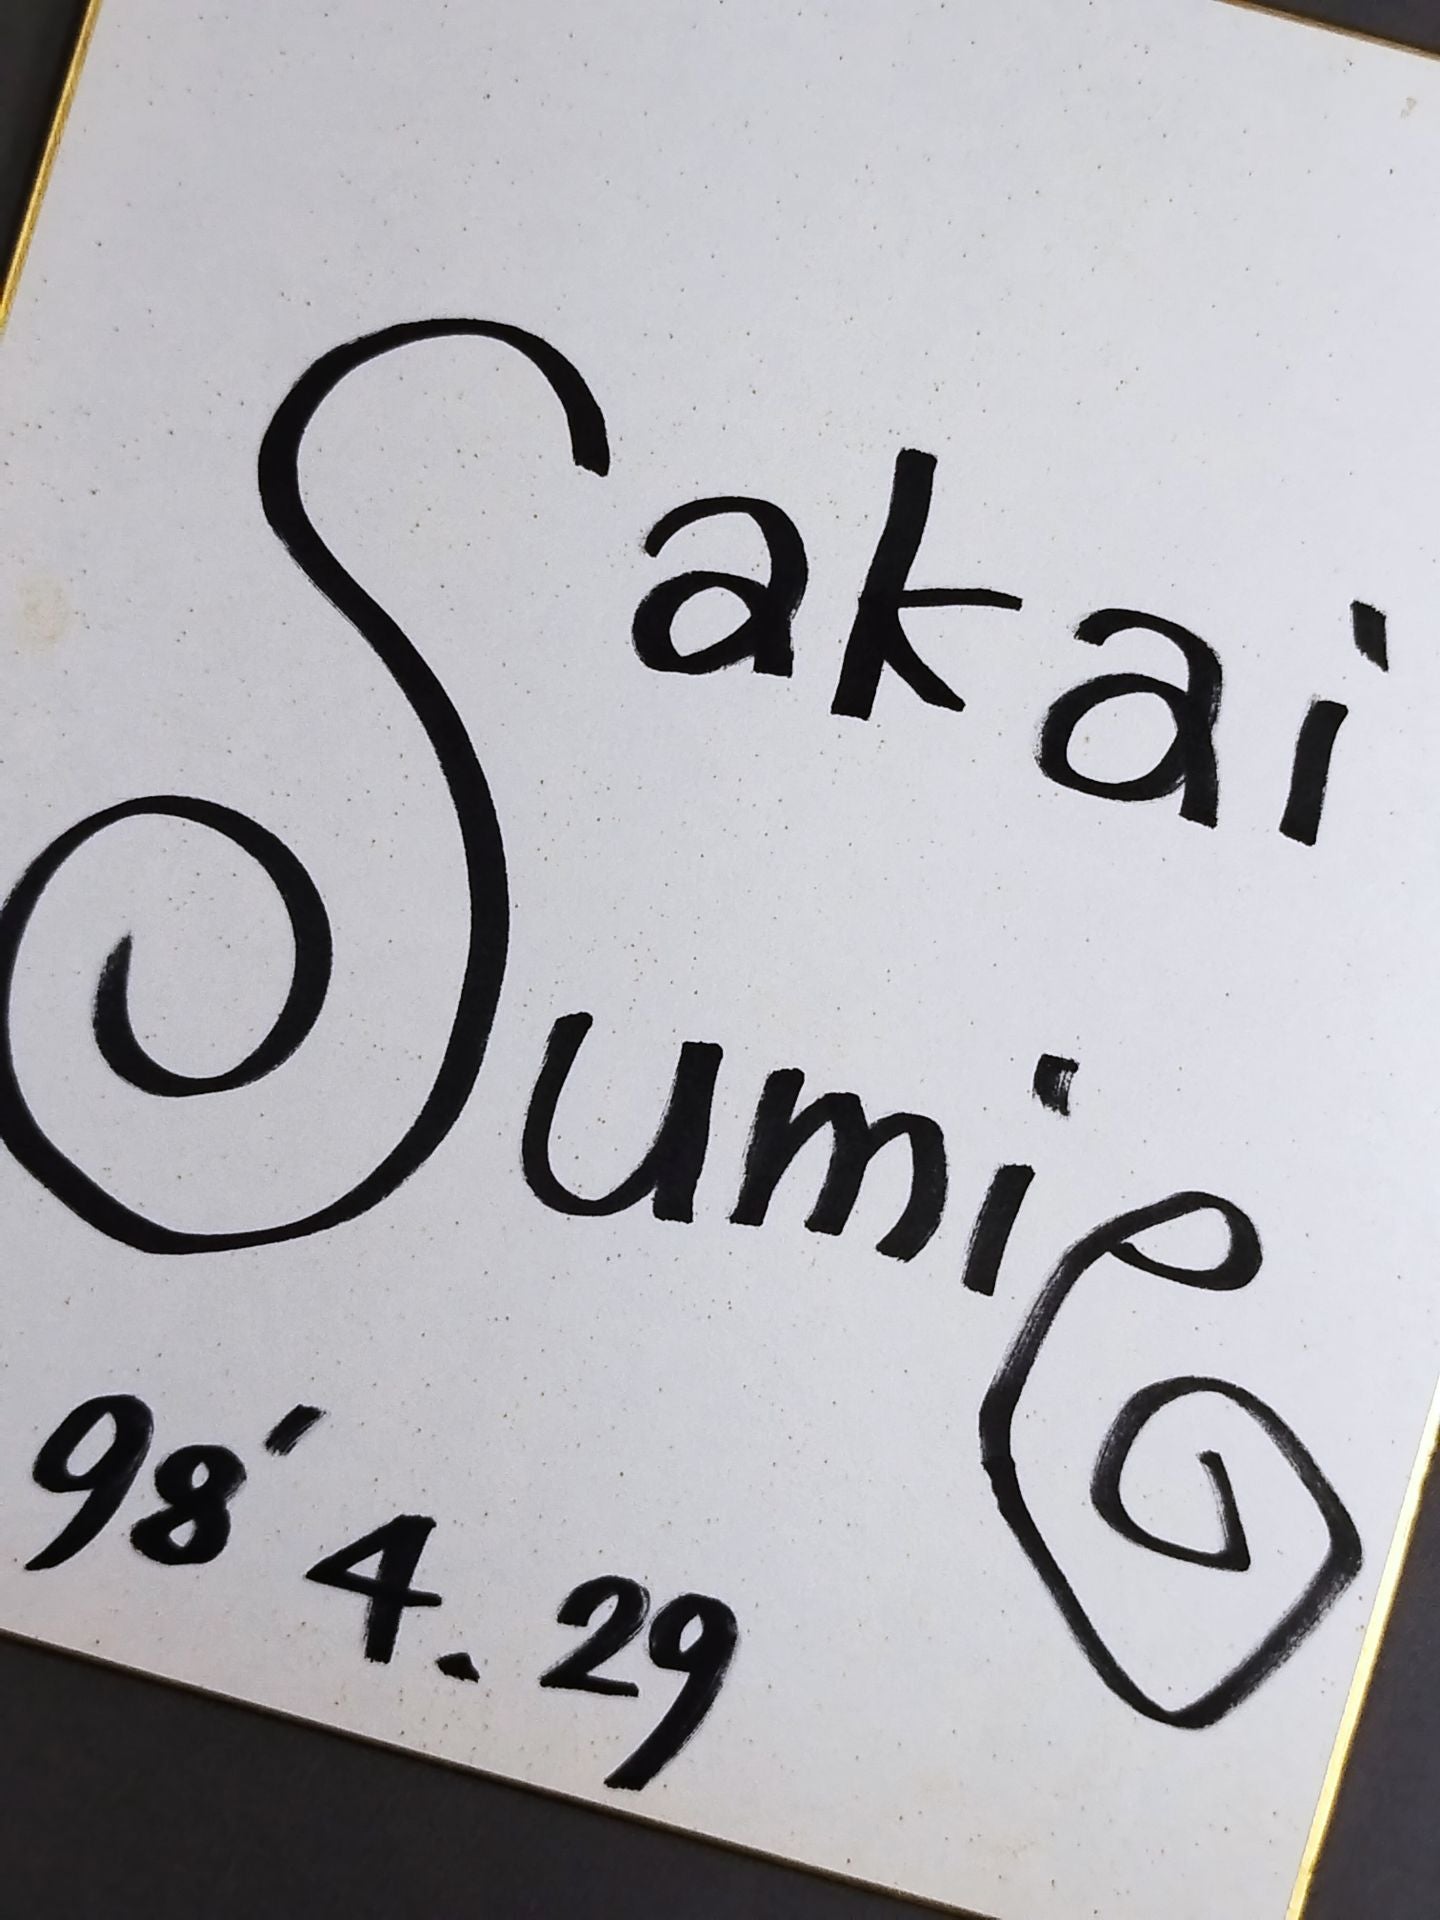 Sakai
Sumie
98' 4. 29